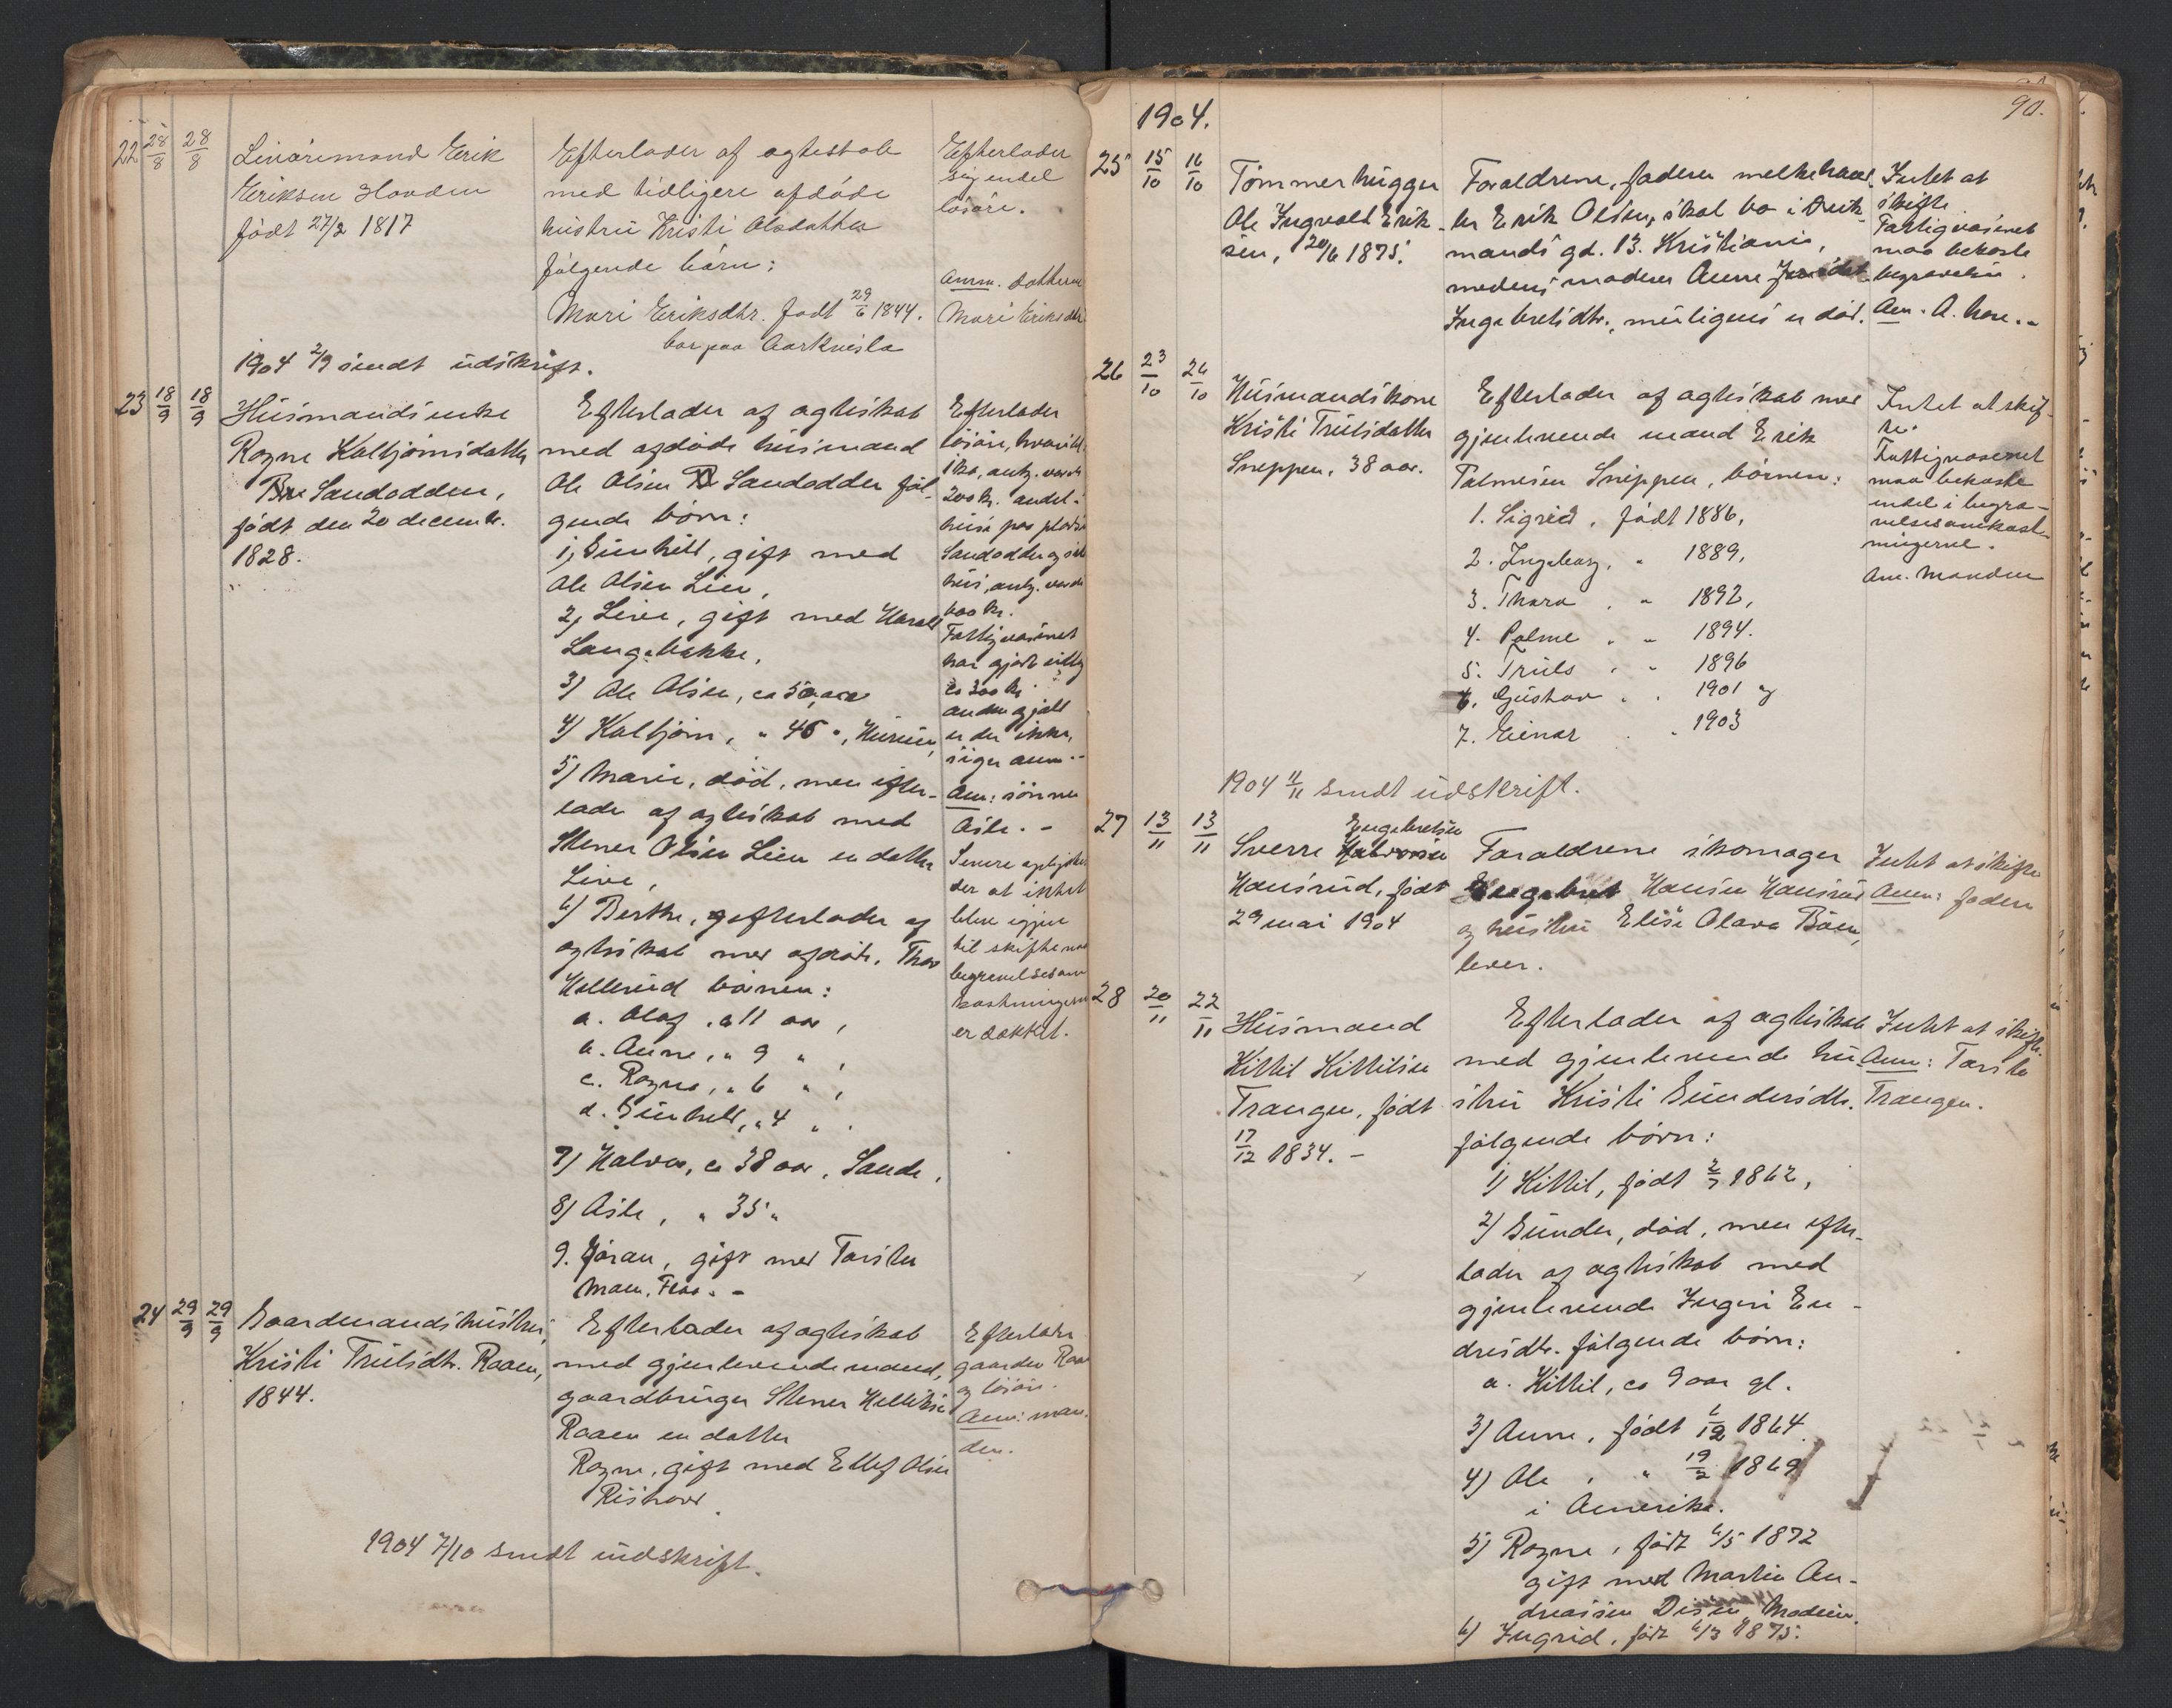 22 28/8 28/8
Livøremand Erik
Eriksen Hovden
født 27/2 1817
Efterlader af ægteskab
med tidligere afdøde
hustru Kristi Olsdatter
følgende børn:
Mari Eriksdtr. født 29/6 1844.
bor paa
Efterlader
sig endel
løsøre.
Anm. datteren
Mari Eriksdtr
1904 2/9 sendt udskrift.
23 18/9 18/9
Husmandsenke
Ragne Kolbjørnsdatter
Sandodden,
født den 20 decembr.
1828.
Efterlader af ægteskab
med afdøde husmand
Ole Olsen Sandodden føl-
gende børn:
1, Gunhild, gift med
Ole Olsen Lien,
2, Live, gift med Harald
Langebakke,
3) Ole Olsen, ca 50 aar
4) Kolbjørn, " 45 ",
5) Marie, død, men efter-
lader af ægteskab med
Stener Olsen Lien en datter
Live,
6) Berthe, efterlader af
ægteskab med afdøde Thor
Hellerud børnene:
a. Olaf, ca 11 aar,
b. Anne, " 9 ",
c. Ragne, " 6 ",
d. Gunhild, " 4 ".
7) Halvor, ca 38 aar, Sande,
8) Asle, " 35 "
9. Jøran, gift med Torsten
Moen, Flaa. -
Efterlader
løsøre,
antg. værdi
200 kr. andel i
huse paa pladsen
Sandodden og
hus, antg. værdi
600 kr.
Fattigvæsenet
har gjort udlæg
ca 300 kr.
anden gjæld
er der ikke,
siger anm. -
Anm: sønnen
Asle. -
Senere oplystes
der at intet
blev igjen
til skifte naar
begravelsesom-
kostningerne
er dækket.
24 29/9 29/9
Gaardmandshustru,
Kristi Trulsdtr. Raaen,
1844.
Efterlader af ægteskab
med gjenlevende mand,
gaardbruger Stener Helliksen
Raaen en datter
Ragne, gift med Ellef Olsen
Efterlader
gaarden Raaen
og løsøre.
Anm: man-
den.
1904 7/10 sendt udskrift.
1904.
90.
25 15/10 16/10
Tømmerhugger
Ole Ingvald Erik-
sen, 20/6 1875.
Forældrene, faderen melkehand-
ler Erik Olsen, skal bo i
mands gd. 13. Kristiania,
medens moderen Anne
Ingebretsdtr., muligens er død.
Intet at
skifte.
Fattigvæsenet
maa bekoste
begravelsen.
Anm. A.
26 23/10 26/10
Husmandskone
Kristi Trulsdatter
Sneppen, 38 aar.
Efterlader af ægteskab med
gjenlevende mand Erik
Palmesen Sneppen, børnene:
1. Sigrid, født 1886,
2. Ingeborg, " 1889,
3. Thora, " 1892,
4. Palme " " 1894.
5. Truls " " 1896
6. Gustav " " 1901 og
7. Einar " " 1903
Intet at skif-
te.
Fattigvæsenet
maa bekoste
endel i begra-
velsesomkost-
ningerne.
Anm. manden
1904 4/11 sendt udskrift.
27 13/11 13/11
Engebretsen
Sverre
Hansrud, født
29 mai 1904
Forældrene skomager
Engebret Hansen Hansrud
og hustru Elise Olava Bøen,
lever.
Intet at skifte
Anm: faderen
28 20/11 22/11
Husmand
Kittil Kittilsen
Trangen, født
17/12 1834. -
Efterlader af ægteskab
med gjenlevende hu-
stru Kristi Gundersdtr.
følgende børn:
1) Kittil, født 2/7 1862,
2) Gunder, død, men efter-
lader af ægteskab med
gjenlevende Ingeri En-
dresdtr. følgende børn:
a. Kittil, ca 9 aar gl.
3) Anne, født 6/12 1864.
4) Ole, " 19/2 1869
i Amerika.
5) Ragne, født 6/5 1872
gift med Martin An-
dreassen Disen, Modum.
6) Ingrid, født 6/3 1875.
Intet at skifte.
Anm: Torsten
Trangen.